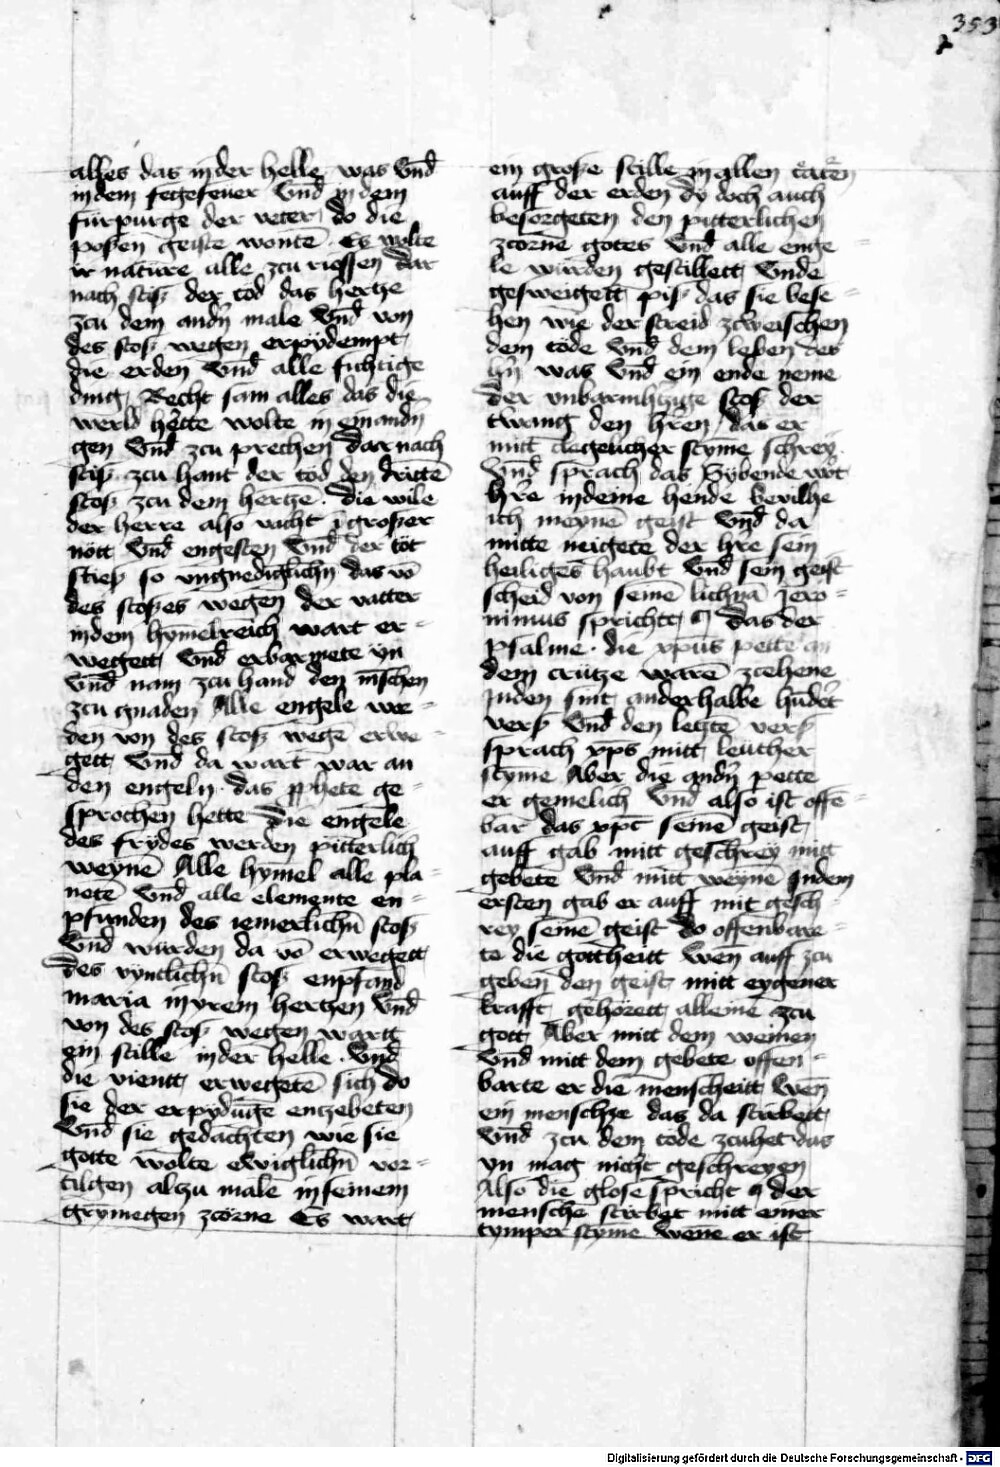 353
alles das in der helle was Vnd̄
in dem fegefeuer Vnd̄ in dem
fürpurge der veter do die
poßen geiste wontē Es wolte
ir nature alle zcu rieffen dar
nach stiß der tod das hertze
zcu dem andn̄ male Vnd̄ von
des stoß wegen erpydempt
die erden Vnd̄ alle fichtige
ding Recht sam alles das die
werld hette wolte in einandn̄
gen Vnd̄ zcu prechen dar nach
stiß zcu hant der tod den drittē
stoß zcu dem hertze die wile
der herre also vacht ī großer
nott Vnd̄ engesten Vnd̄ der töt
stieß so vngnediglichn̄ das vō
des stoßes wegen der vatter
in dem hymelreich wart er-
wegett Vnd̄ erbarmete yn
Vnd̄ nam zcu hand den mēschen
zcu gnaden Alle engele wr-
den von des stoß wegē erwe-
gett Vnd̄ da wart war an
den engeln das pphete ge-
sprochen hette die engele
des frydes werden pitterlich
weynē Alle hymel alle pla-
netē Vnd̄ alle elemente en-
pfunden des iemerlichn̄ stoß
Vnd̄ wurden da vō erwegett
des vyntlichn̄ stoß enpfand
maria in yrem hertzen Vnd̄
von des stoß wegen wartt
ein stille in der helle Vnd̄
die vientt erwegetē sich do
sie der erpydūge entzebeten
Vnd̄ sie gedachten wie sie
gotte wolte ewiglichn̄ vor-
tilgen alzu male in seinem
grymegen zcorne Es wart
ein große stille in allen
auff der erden dy doch auch
besorgeten den pitterlichen
zcornē gotes Vnd̄ alle enge-
le würden gestillett Vnde
gesweigett piß das sie bese-
hen wie der streid zcweischen
dem tode Vnd̄ dem leben des
hn̄ was Vnd̄ ein ende neme
der vnbarmhtzige stoß der
twang den hren das er
mitt clagelicher styme schrey
Vnd̄ sprach das Sybende wrt
hre in deine hende bevilhe
ich meynē geist Vnd̄ da
mitte neigete der hre sein
heiliges haubt Vnd̄ sein geist
scheid von seinē lichnā Jero-
nimus sprichtt das der
psalme die xp̄us pette an
dem crütze warē zcehene
Jnden sint anderhalbe hūdet
verß Vnd̄ den letztē verß
sprach xp̄s mitt leuther
styme Aber die andn̄ pette
er gemelich Vnd̄ also ist offē-
bar das xp̄c seinē geist
auff gab mitt geschrey mitt
gebetē Vnd̄ mitt weynē Jndem
ersten gab er auff mit gesch-
rey seinē geist do offenbare-
te die gottheitt wen auff zcu
geben den geist mitt eygener
krafft gehörett alleine zcu
gott Aber mitt dem weinen
Vnd̄ mitt dem gebete offen-
barte er die menscheitt wen
ein mensche das da stirbett
Vnd̄ zcu dem tode zcuhet das
yn mag nicht geschreyen
Also die glose spricht der
menschē stirbet mitt einer
tymper styme wene er ist
Digitalisierung gefördert durch die Deutsche Forschungsgemeinschaft - DFG